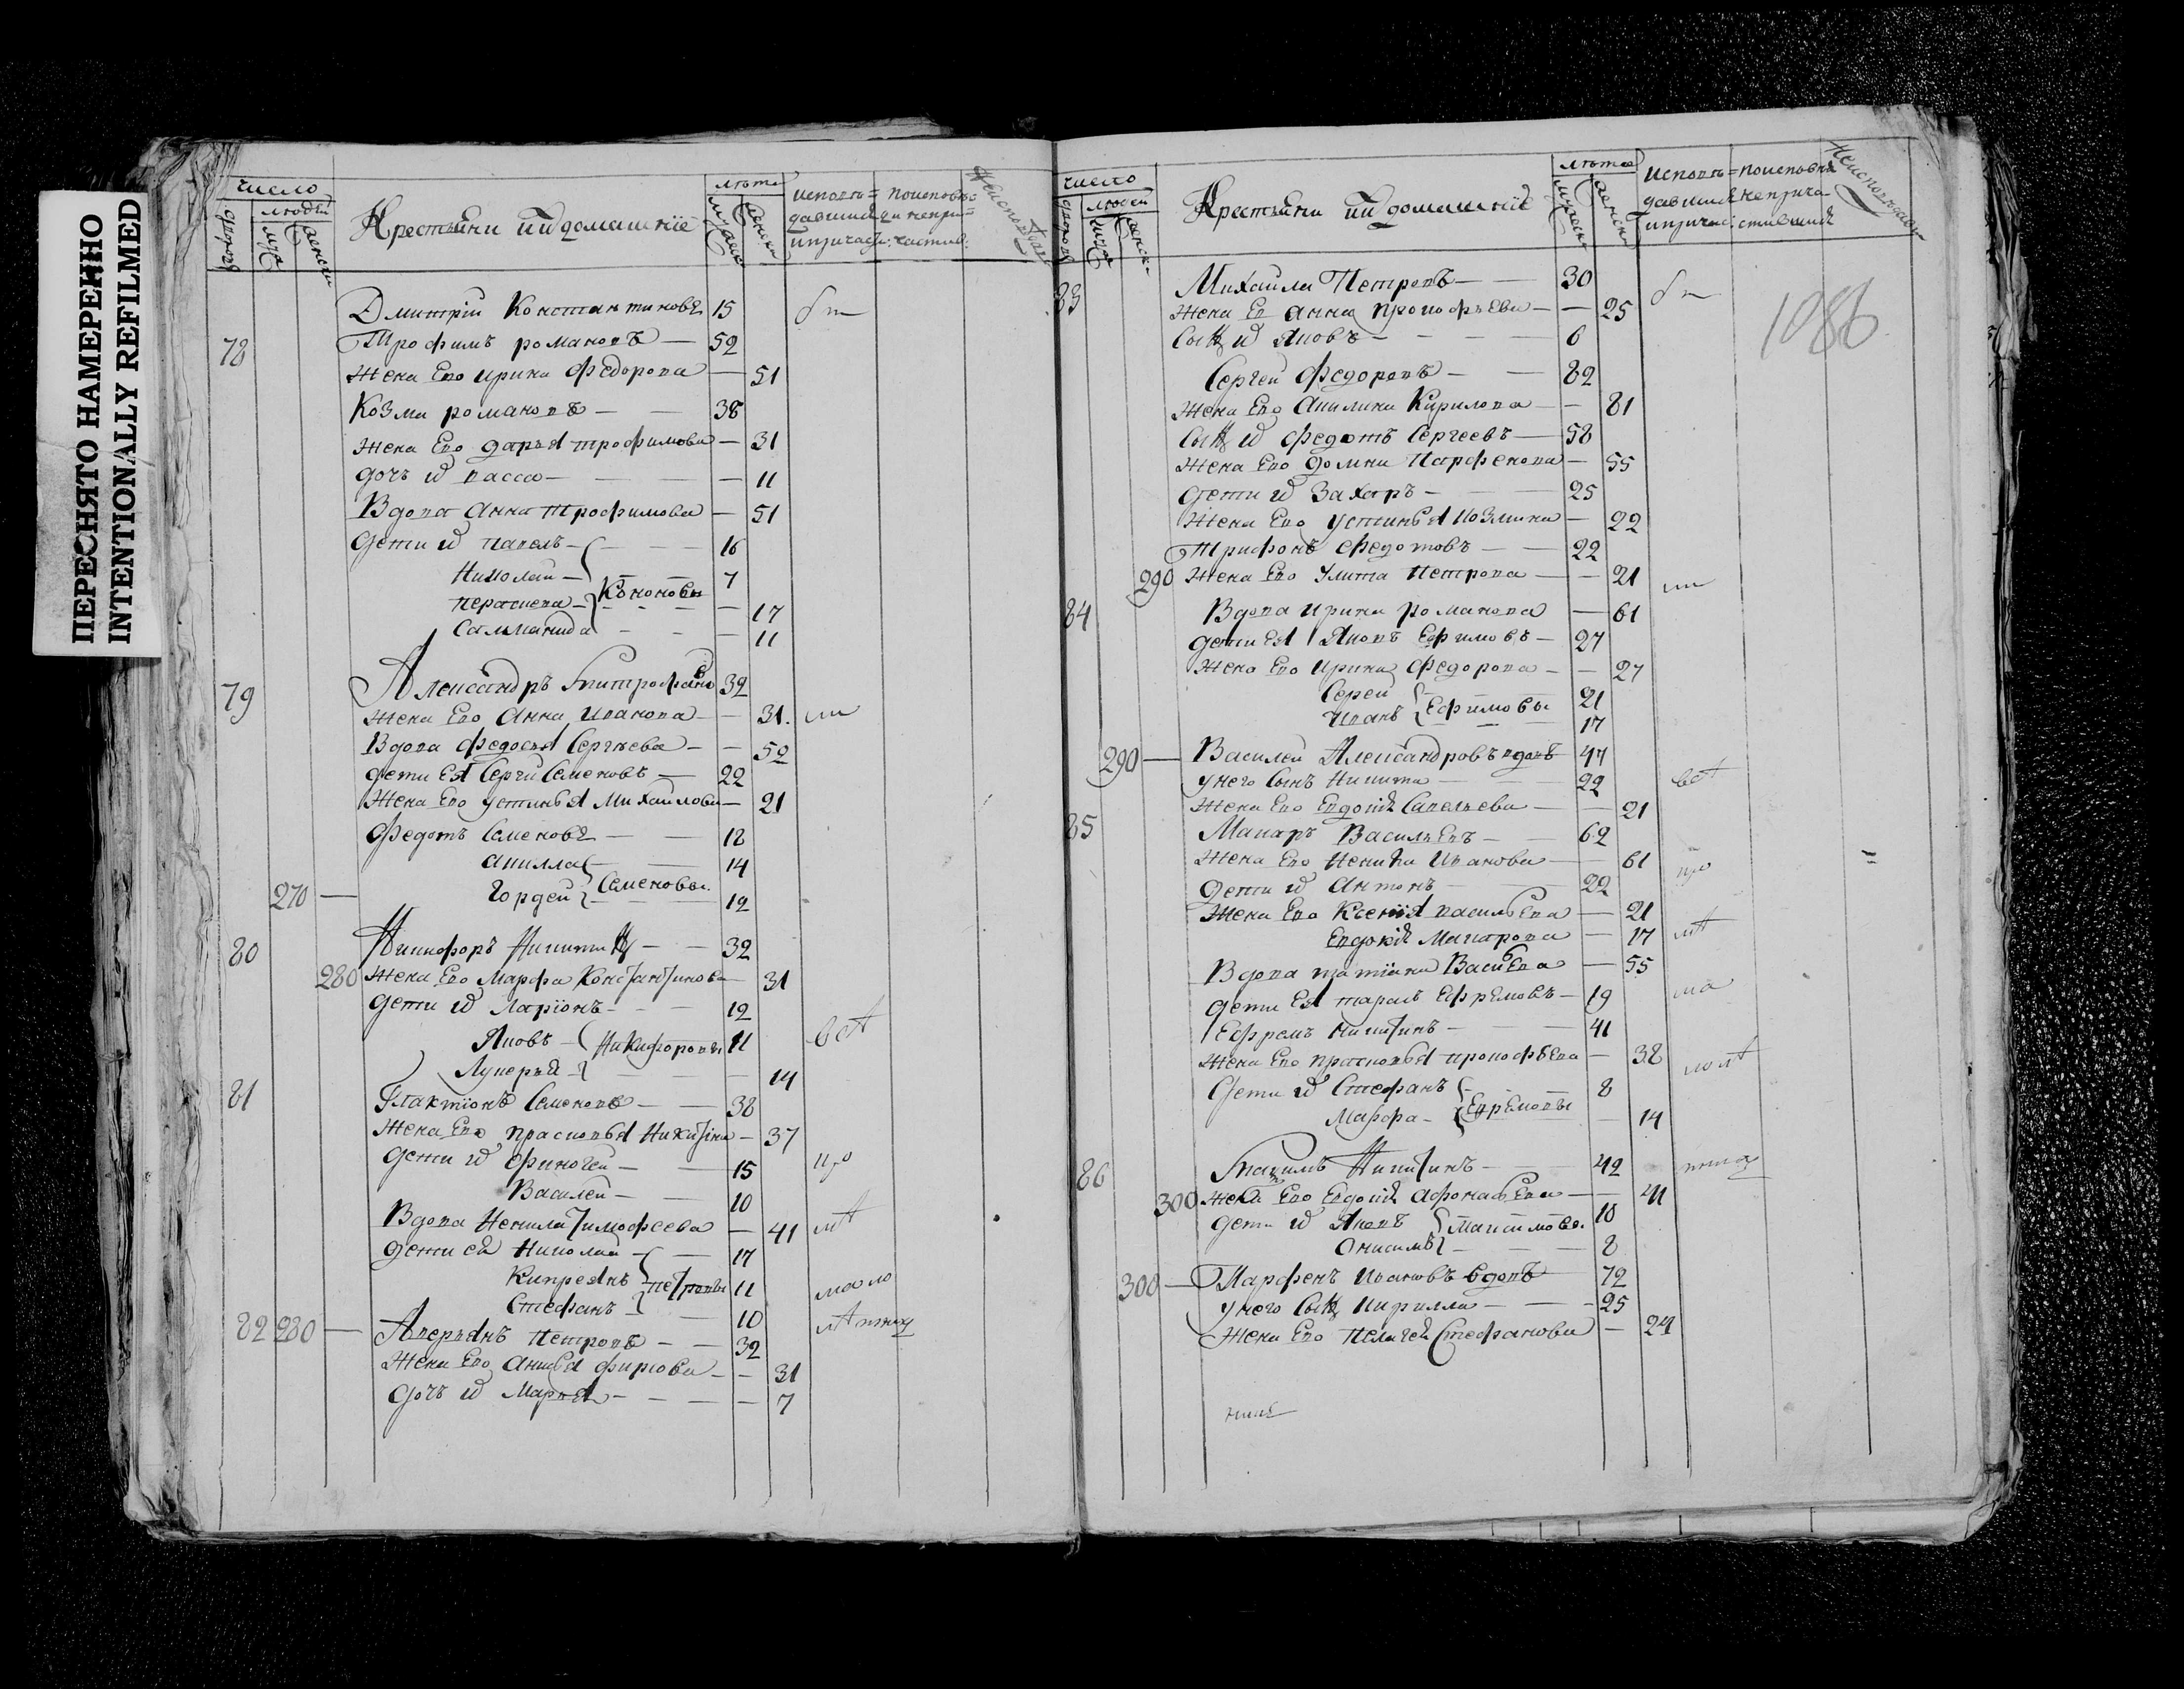 ПЕРЕСНЯТО НАМЕРЕННО
INTENTIONALLY REFILMED
число
людей
Крестьяни ии домашніе
лѣта
Дмитрій Константиновъ 15
78 Трофимъ романовъ — 52
Жена Его ирина Федорова — 51
Козма романовъ — 38
Жена Его дарья трофимова — 31
дочь и васса — 11
Вдова Анна Трофимова — 51
Дети и павелъ — 16
Николай — 7
Кононовы
параскева — 17
11
79 Александръ Митрофано 32
Жена Его Анна Иванова — 31
Вдова Федосья Сергѣева — 52
дети Ея Сергй Семеновъ — 22
Жена Его устинья Михаилова — 21
Федотъ Семеновъ — 18
акилла — 14
Семеновы
270 — Гордей — 12
80 Никифоръ Никитин — 32
280 Жена Его Марфа Константинова — 31
Дети и Ларіонъ — 12
Яковъ — Никифоровы 11
Лукерья — 14
вся
81 Галактіонъ Семеновъ — 38
Жена Его прасковья Никитина — 37
Дети и Финогей — 15
Василей — 10
Вдова Ненила Тимофеева — 41
дети ея Николай — 17
Кипреянъ петровы 11
Стефанъ — 10
82 280 — Аверьянъ Петровъ — 32
Жена Его Анисья фирсова — 31
Дочь и Марья — 7
число
людей
Крестьяни ии домашніе
лѣта
1086
83 Михайла Петровъ — 30
Жена Ев анна прокофьева — 25
Сын и Яковъ — 6
Сергей Федоровъ — 82
Жена Его Акилина Кирилова — 81
Сын и Федотъ Сергеевъ — 58
Жена Его домна Парфенова — 55
дети и Захаръ — 25
Жена Его устинья Козмина — 22
Трифонъ Федотовъ — 22
290 Жена Его Улита Петрова — 21
84 Вдова Ирина романова — 61
дети Ея Яковъ Ефимовъ — 27
Жена Его Ирина Федорова — 27
Сергей 21
Ефимовы
Иванъ 17
290 — Василей Александровъ вдовъ 47
у него Сынъ Никита 22
вся
Жена Его Евдокия Савельева — 21
85 Макаръ Васильевъ — 62
Жена Его Ненила Иванова — 61
Дети и Антонъ — 22
Жена Его Ксенія васильева — 21
Евдокія Макарова — 17
Вдова татіана Васильева — 55
Дети Ея тарасъ Ефремовъ — 19
Ефремъ Никитинъ — 41
Жена Его прасковья прокофьева — 38
Дети и Стефанъ — 8
Ефремовы
Марфа — 14
86 Максимъ Никитинъ — 42
300 Жена Его Евдокия Афонасьева — 41
дети и Яковъ 10
Максимовы
Онисимъ — 8
300 — Парфенъ Ивановъ вдовъ 72
у него Сын Кирилла — 25
Жена Его Пелагея Стефанова — 24